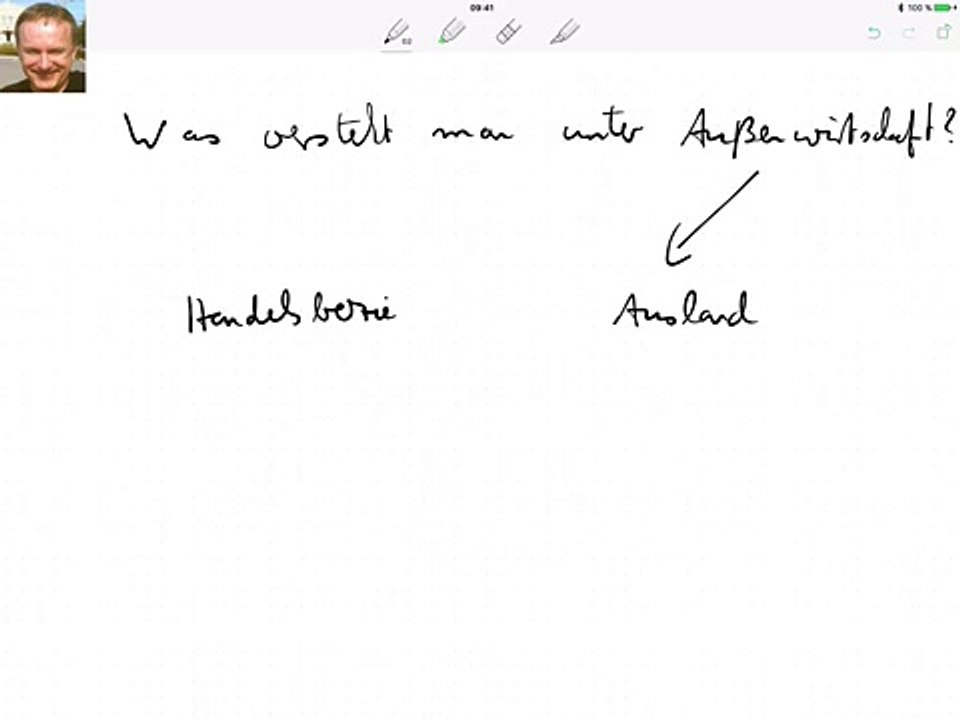 09:41
100 %
02
Was versteht man unter Außenwirtschaft?
Handelsbezie Ausland